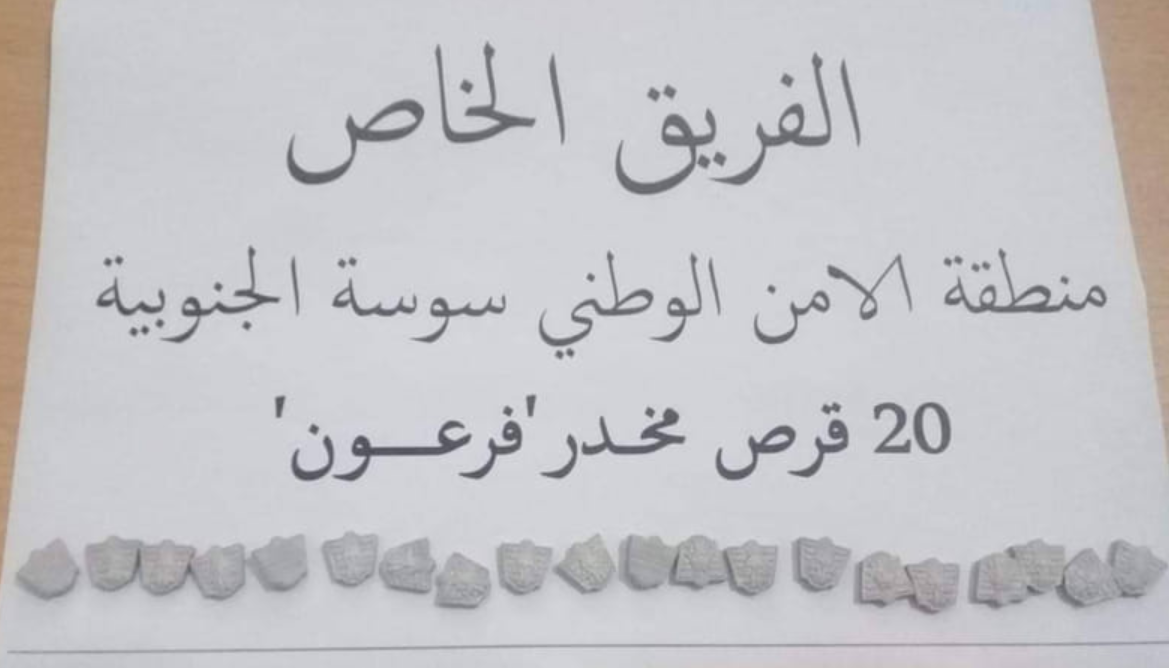 الفريق الخاص
منطقة الامن الوطني سوسة الجنوبية
20 قرص مخدر 'فرعون'